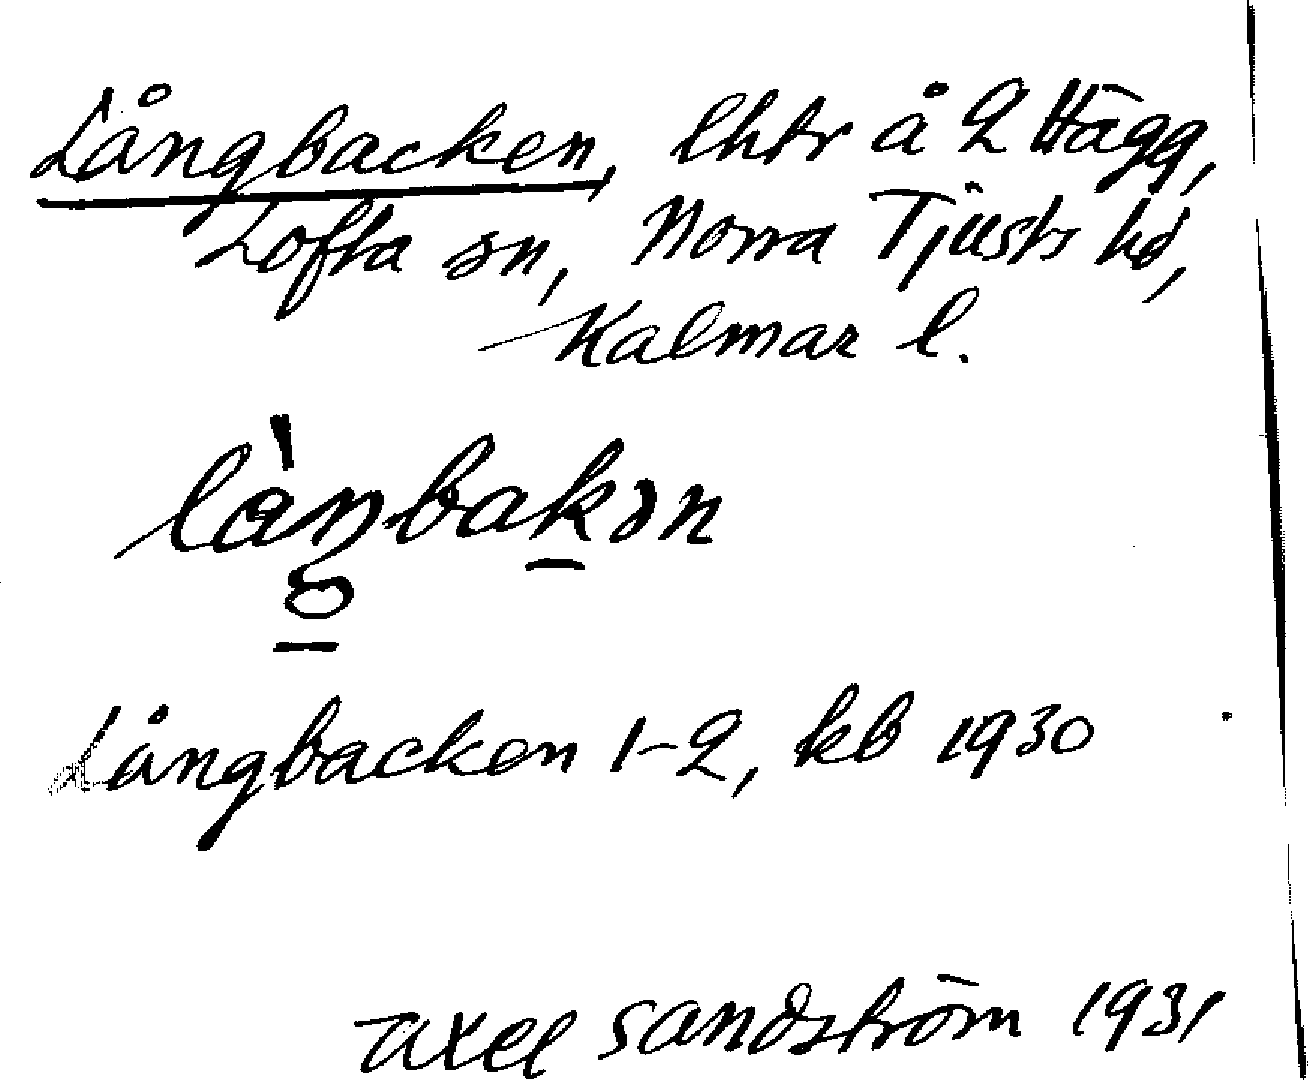 Långbacken, lhtr å 2 Hägg,
Lofta sn, Norra Tjusts hd,
Kalmar l.
làŋbakən
Långbacken 1-2, kb 1930
Axel Sandström 1931